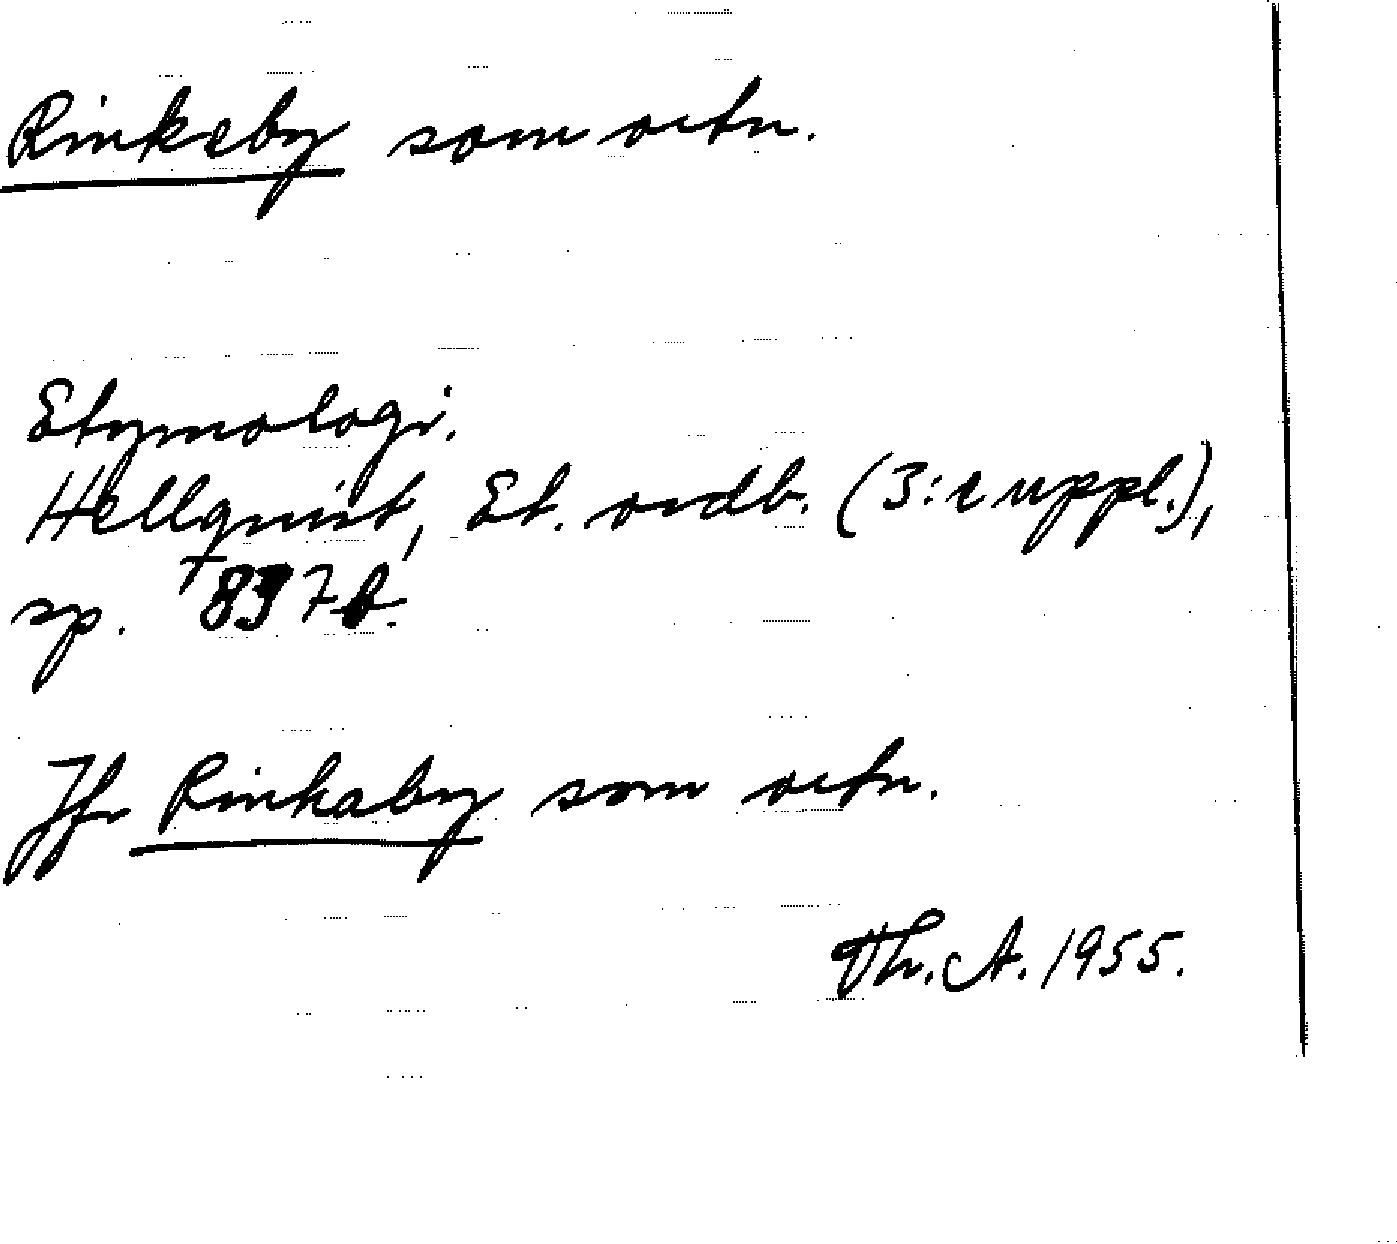 Rinkeby som ortn.
Etymologi.
Hellquist, Et. ordb. (3:e uppl.),
sp. 837 f.
Jfr Rinkaby som ortn.
Th. A. 1955.